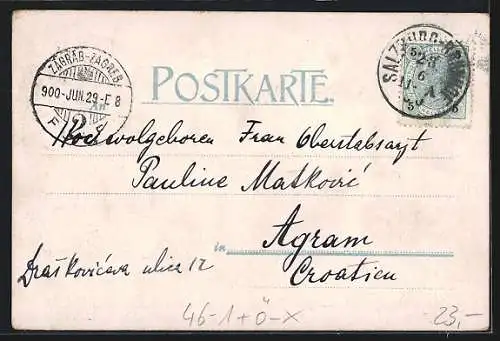 ZÁGRÁB-ZAGREB
900-JUN.29-E 8
F
POSTKARTE.
SALZBURG
29
6
Hochwolgeboren Frau Oberstabsarzt
Pauline Matković
in Agram
Draškovićeva ulica 12
Croatien
46-1+Ö-X
23,-